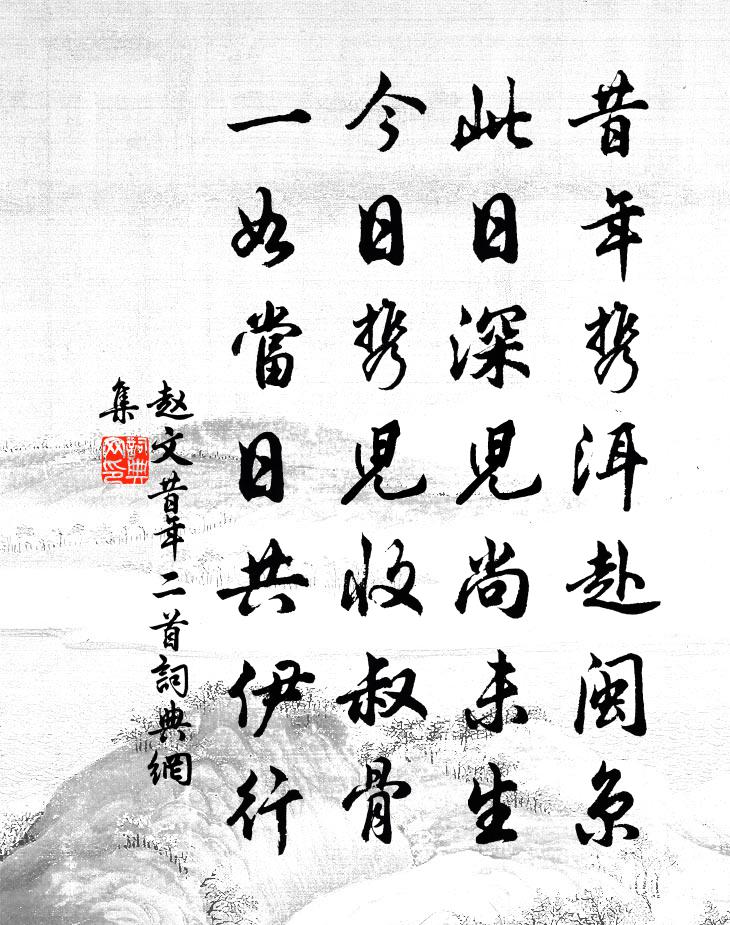 昔年携洱赴闽京
此日深兒尚未生
今日携兒收叔骨
一如當日共伊行
赵文昔年二首詞典網
集
詞典
网印